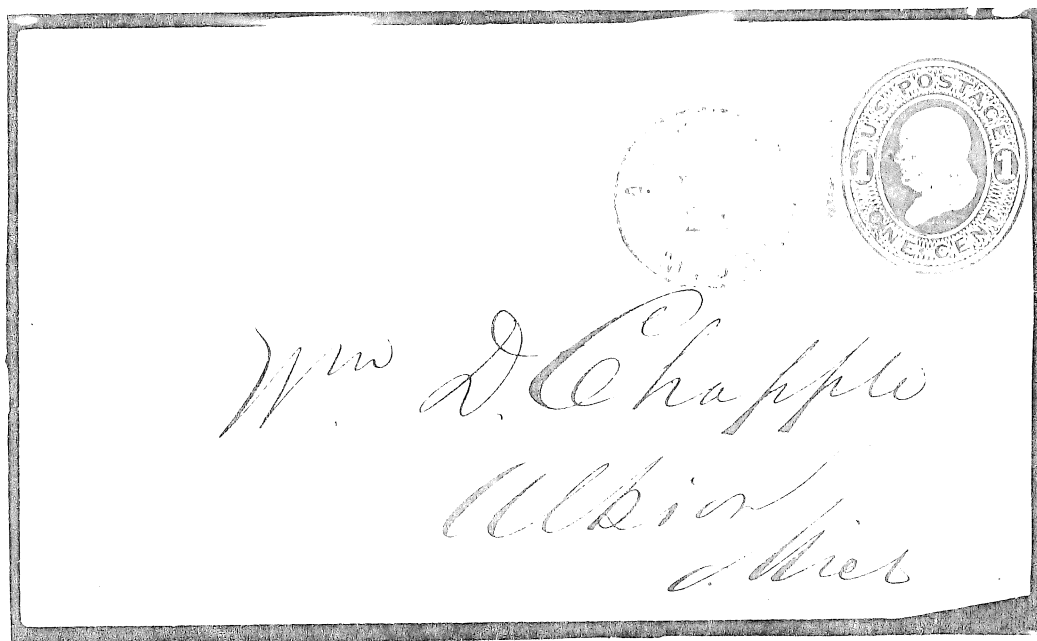 U.S. POSTAGE
1 1
ONE CENT
Wm. D. Chapple
Albion
Mich